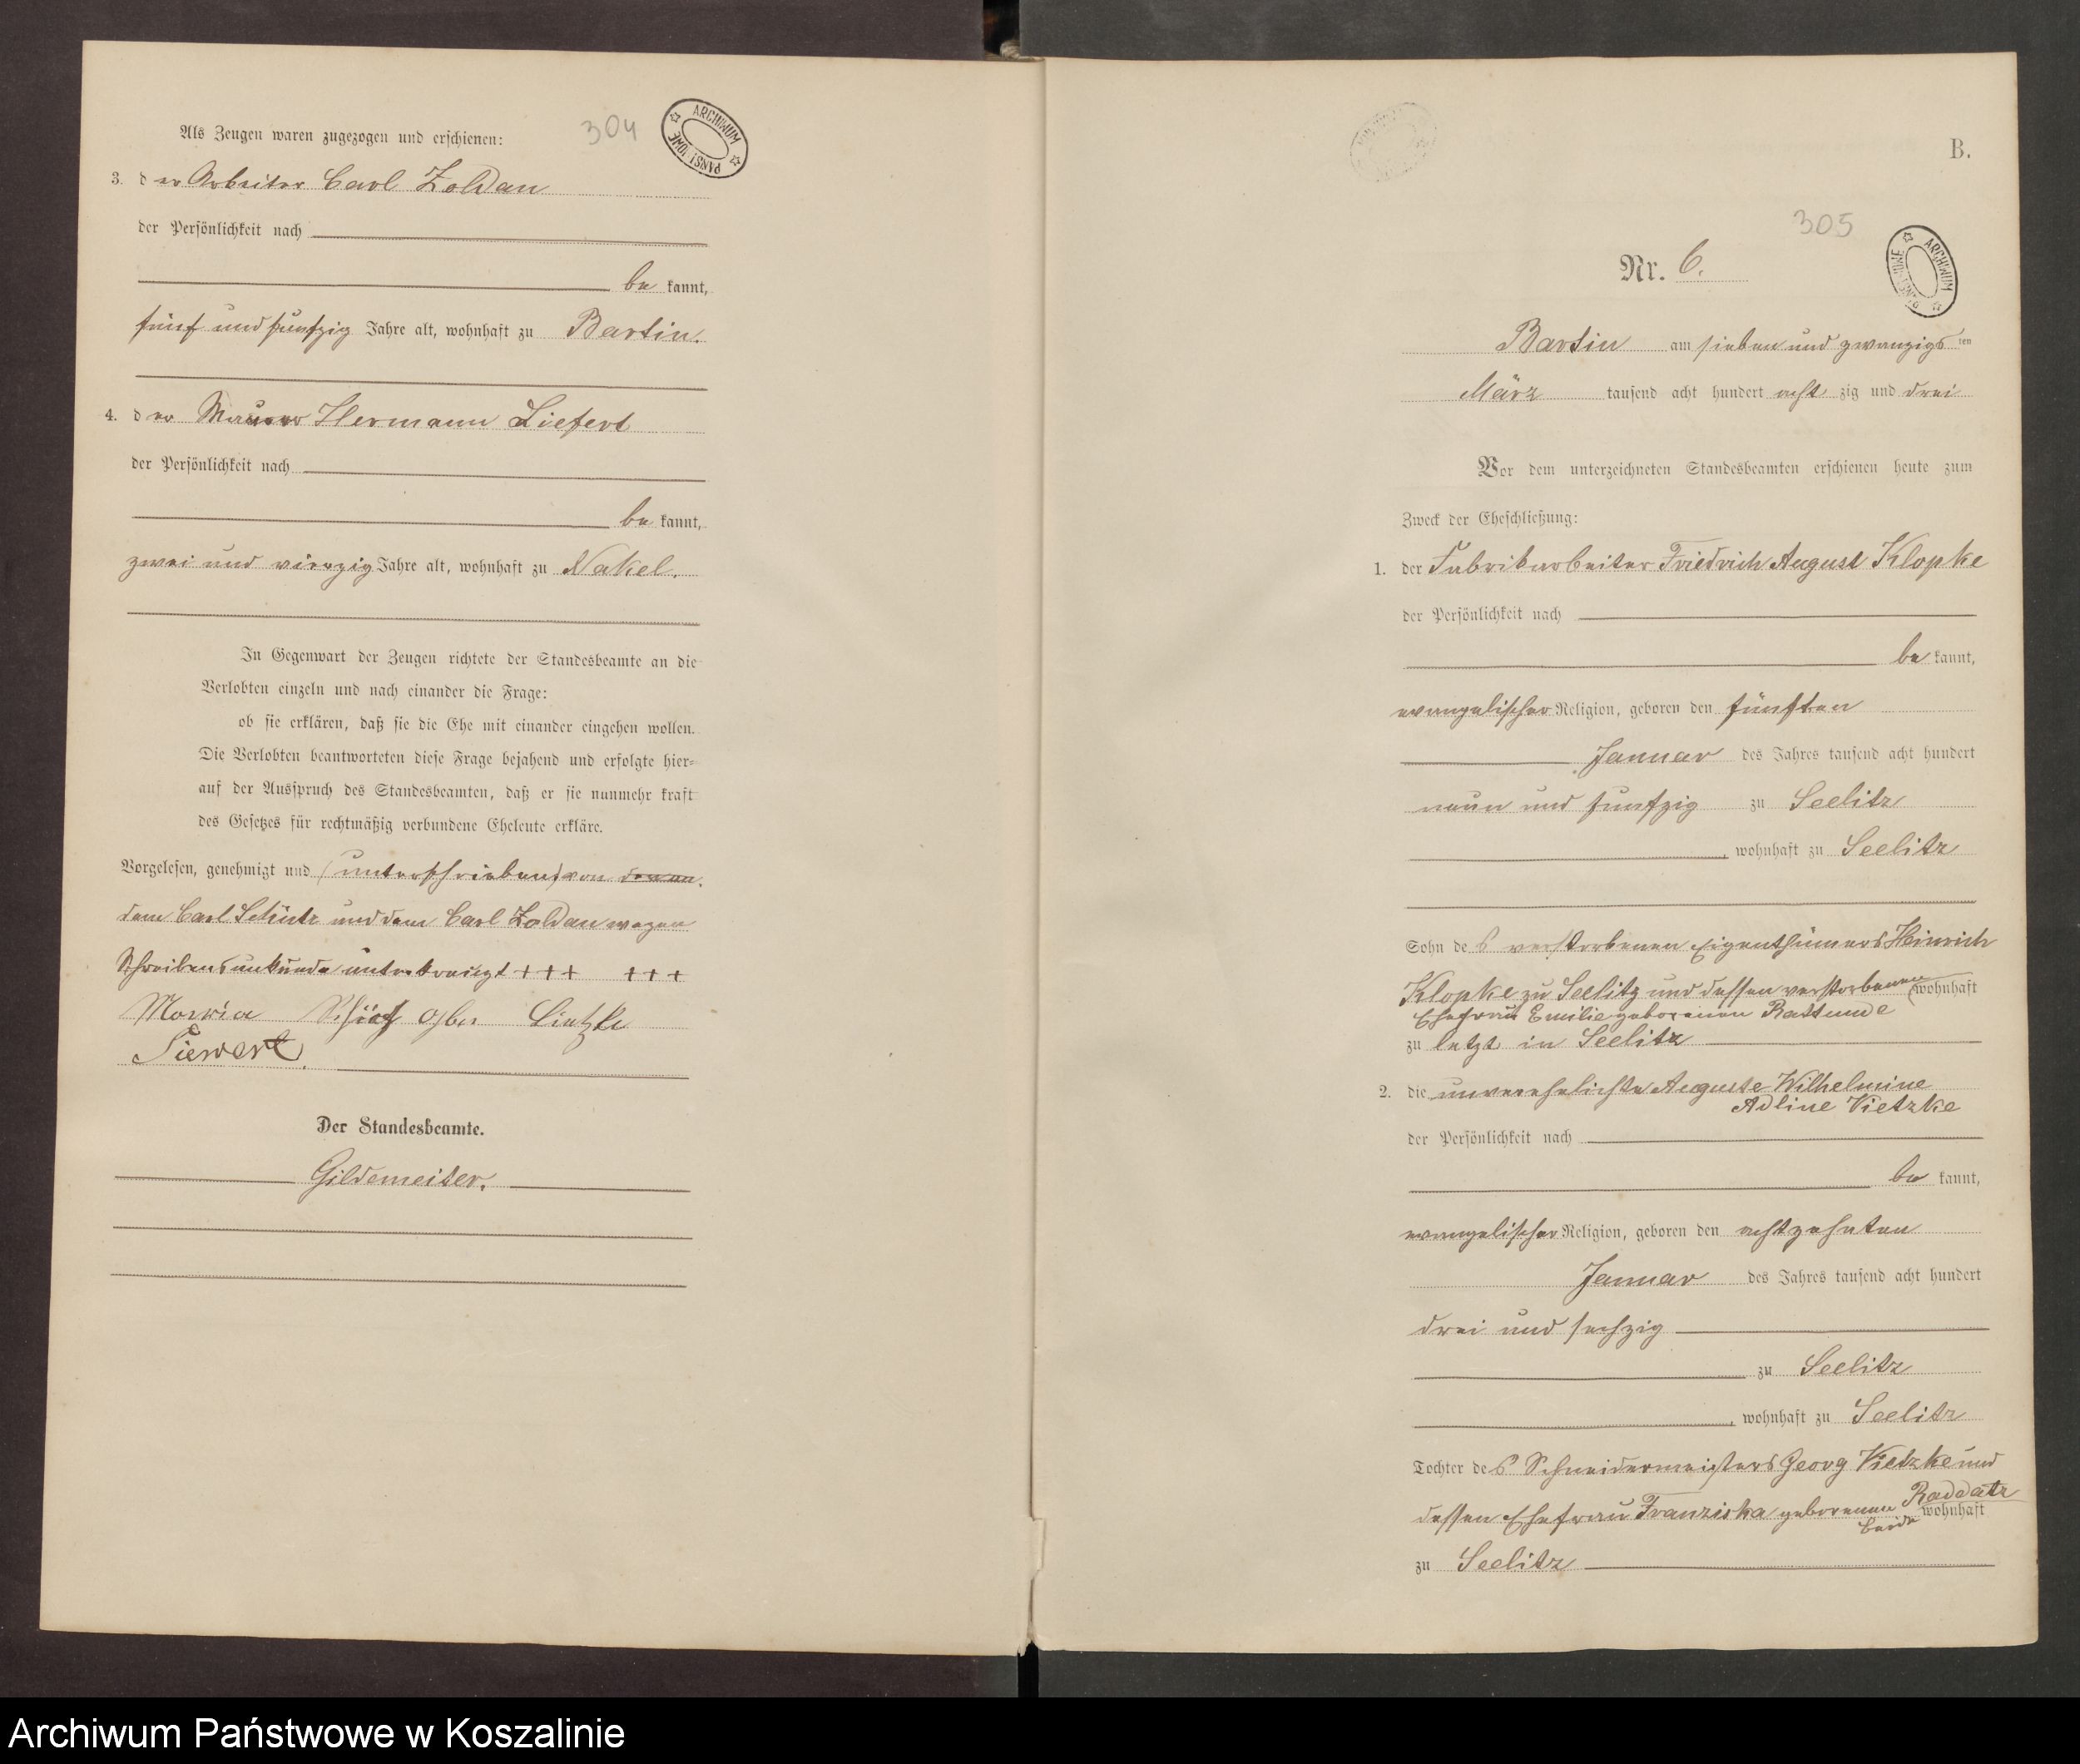 Als Zeugen waren zugezogen und erschienen:
304
ARCHIWUM PAŃSTWOWE
3. der Arbeiter Carl Zoldan
der Persönlichkeit nach
be kannt,
fünf und funfzig Jahre alt, wohnhaft zu Bartin.
4. der Maurer Hermann Liefert
der Persönlichkeit nach
be kannt,
zwei und vierzig Jahre alt, wohnhaft zu Nakel.
In Gegenwart der Zeugen richtete der Standesbeamte an die
Verlobten einzeln und nach einander die Frage:
ob sie erklären, daß sie die Ehe mit einander eingehen wollen.
Die Verlobten beantworteten diese Frage bejahend und erfolgte hier-
auf der Ausspruch des Standesbeamten, daß er sie nunmehr kraft
des Gesetzes für rechtmäßig verbundene Eheleute erkläre.
Vorgelesen, genehmigt und (unterschrieben) von
dem Carl Schütz und dem Carl Zoldan wegen
Schreibensunkunde unterkreuzt +++ +++
Siewert.
Der Standesbeamte.
Gildemeister.
B.
305
ARCHIWUM PAŃSTWOWE
Nr. 6.
Bartin am sieben und zwanzigsten
März tausend acht hundert acht zig und drei
Vor dem unterzeichneten Standesbeamten erschienen heute zum
Zweck der Eheschließung:
1. der Fabrikarbeiter Friedrich August Klopke
der Persönlichkeit nach
be kannt,
evangelischer Religion, geboren den fünften
Januar des Jahres tausend acht hundert
neun und funfzig zu Seelitz
, wohnhaft zu Seelitz
Sohn des verstorbenen Eigenthümers Heinrich
Klopke zu Seelitz und dessen verstorbenen wohnhaft
Ehefrau Emilie geborenen Rattunde
zu letzt in Seelitz
2. die unverehelichte Auguste Wilhelmine
Adline Vietzke
der Persönlichkeit nach
be kannt,
evangelischer Religion, geboren den achtzehnten
Januar des Jahres tausend acht hundert
drei und sechzig
zu Seelitz
, wohnhaft zu Seelitz
Tochter des Schneidermeisters Georg Vietzke und
dessen Ehefrau Franziska geborenen Raddatz
beide wohnhaft
zu Seelitz
Archiwum Państwowe w Koszalinie